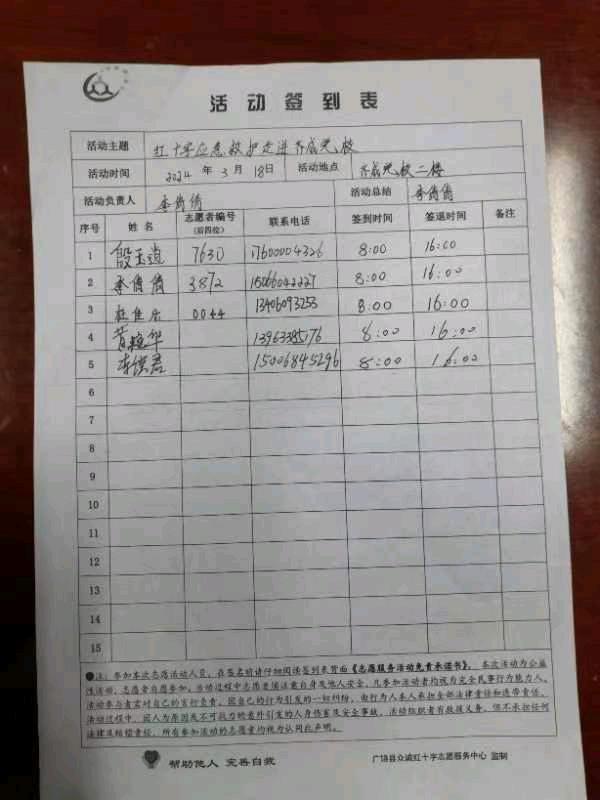 活动签到表
活动主题 红十字应急救护走进齐盛党校
活动时间 2024 年 3 月 18日 活动地点 党校二楼
活动负责人 李倩倩 活动总结 李倩倩
序号 姓名 志愿者编号(后四位) 联系电话 签到时间 签退时间 备注
1 殷玉道 7630 17600004326 8:00 16:00
2 李倩倩 3872 15066042227 8:00 16:00
3 0044 13406093253 8:00 16:00
4 13963385176 8:00 16:00
5 15006845296 8:00 16:00
6
7
8
9
10
11
12
13
14
15
●注:参加本次志愿活动人员,在签名前请仔细阅读签到表背面《志愿服务活动免责承诺书》。本次活动为公益
性活动,志愿者自愿参加,活动过程中志愿者须注意自身及他人安全,凡参加活动者均视为完全民事行为能力人。
活动参与者需对自己的言行负责,因自己的行为引发的一切纠纷,由行为人本人承担全部法律责任和连带责任。
活动过程中,因人为原因或不可抗力的意外引发的人身伤害及安全事故,活动组织者有救援义务,但不承担任何
法律及赔偿责任,所有参加活动的志愿者均视为认同此声明。
帮助他人 完善自救 广饶县众诚红十字志愿服务中心 监制